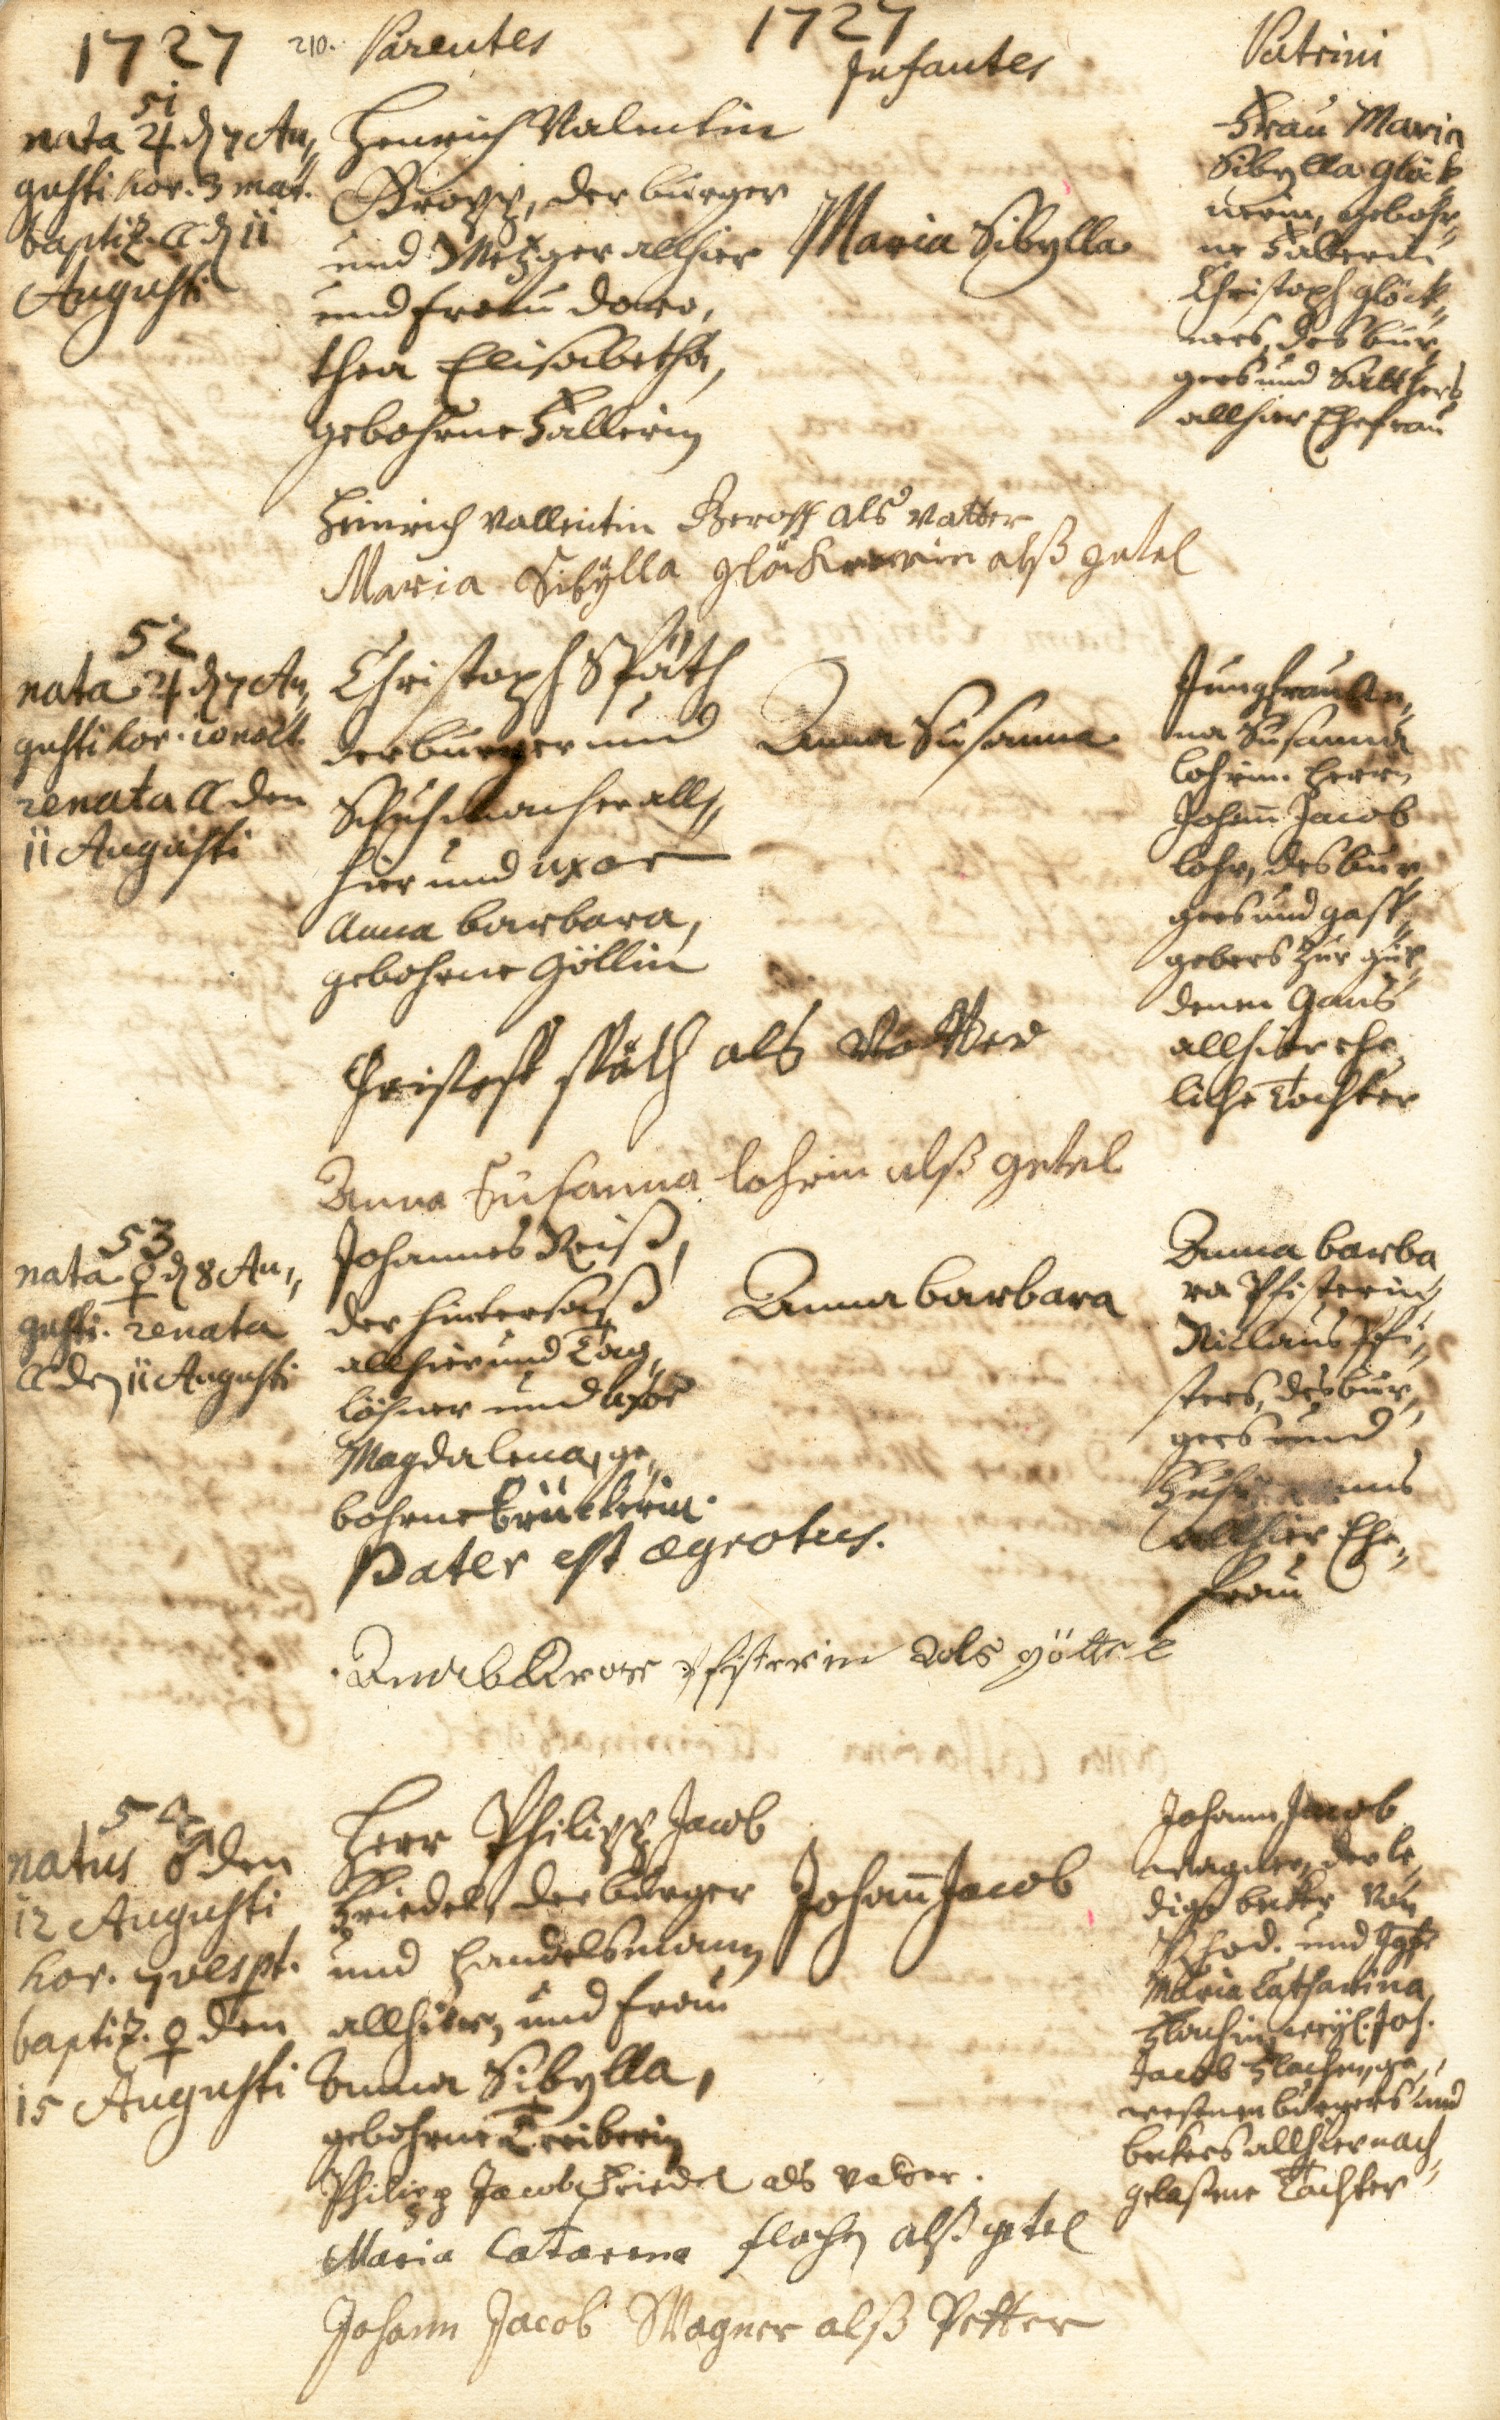 1727
210. Parentes
1727
Infantes
Patrini
51
nata ♃ d 7 Au,,
gusti hor. 3 mat.
baptiz. ☾ d 11
Augusti
Henrich Valentin
Gropp, der burger
und Metzger allhier
und frau Doro,
thea Elisabetha,
gebohrne Hallerin
Maria Sibylla.
Frau Maria
Sibylla Glöck,,
nerin, gebohr,,
ne Faberin
Christoph Glöck,,
ners, des bur,,
gers und Sattlers
allhier Ehefrau
Heinrich Vallentin Groff als Vatter
Maria Sibÿlla Glöcknerin alß getel
52
nata ♃ d 7 Au,,
gusti hor. 10 noct.
renata ☾ den
11 Augusti
Christoph Späth
der burger und
Schuhmacher all,,
hier und uxor
Anna barbara,
gebohrne Göllin
Anna Susanna.
Jungfrau An,,
na Susanna
Lohrin. Herrn
Johann Jacob
Lohr, des bur,,
gers und gast,,
gebers zur gül,,
denen Gans
allhier ehe,,
liche Tochter
Christoff späth als Vatter
Anna Susanna lohrin alß getel
53
nata ♀ d 8 Au,,
gusti. renata
☾ den 11 Augusti
Johannes Reiß,
der hintersaß
allhier und Tag,,
löhner und uxor
Magdalena, ge,,
bohrne brückerin.
Pater est ægrotus.
Anna barbara
Anna barba
ra Pfisterin
Niclaus Pfi,,
sters, des bur,,
gers und
allhier Ehe,,
frau
pfisterin als göttel
54
natus ♂ den
12 Augusti
hor. 7 vespt.
baptiz. ♀ den
15 Augusti
Herr Philipp Jacob
Friedel, der burger
und Handelsmann
allhier, und frau
Anna Sibylla,
gebohrne Treiberin
Johann Jacob
Johann Jacob
Wagner, der le,,
dige becker von
Rhod. und Jgfr
Maria Catharina
Flachin weyl. Joh.
Jacob Flachen, ge,,
wesenen burgers und
beckers allhier nach,,
gelaßene Tochter
Philipp Jacob Friedel als vatter.
Maria Catarina flachin alß getel
Johann Jacob Wagner alß Petter